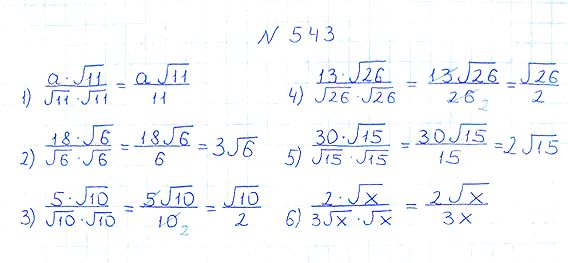 N 543
1) a·√11 / √11·√11 = a√11 / 11
2) 18·√6 / √6·√6 = 18√6 / 6 = 3√6
3) 5·√10 / √10·√10 = 5√10 / 10 2 = √10 / 2
4) 13·√26 / √26·√26 = 13√26 / 26 2 = √26 / 2
5) 30·√15 / √15·√15 = 30√15 / 15 = 2√15
6) 2·√x / 3√x·√x = 2√x / 3x